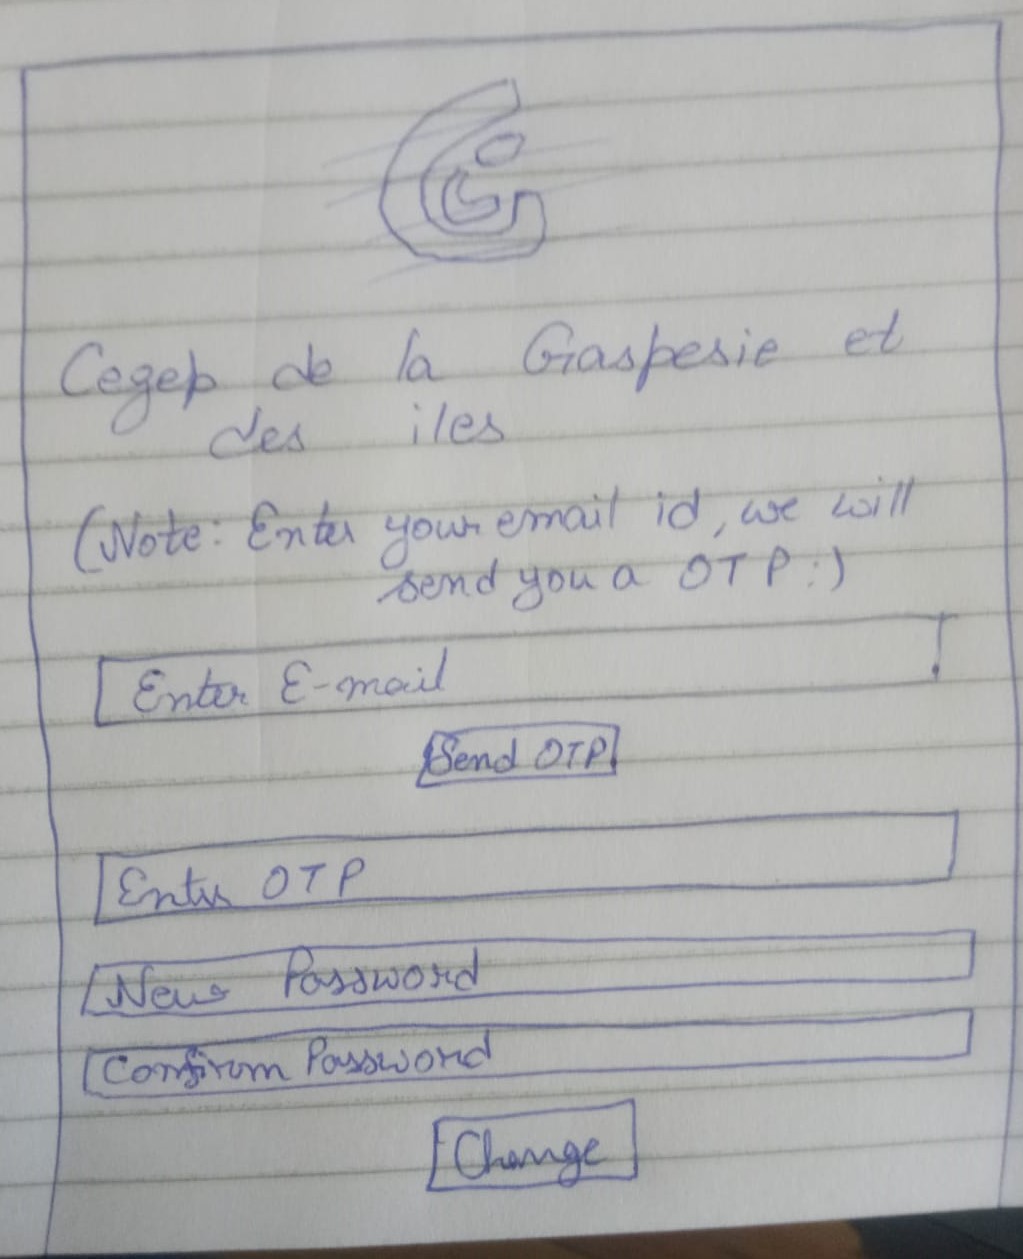 Cegep de la Gaspesie et
des iles
(Note: Enter your email id, we will
send you a OTP:)
Enter E-mail
Send OTP
Enter OTP
New Password
Confirm Password
Change